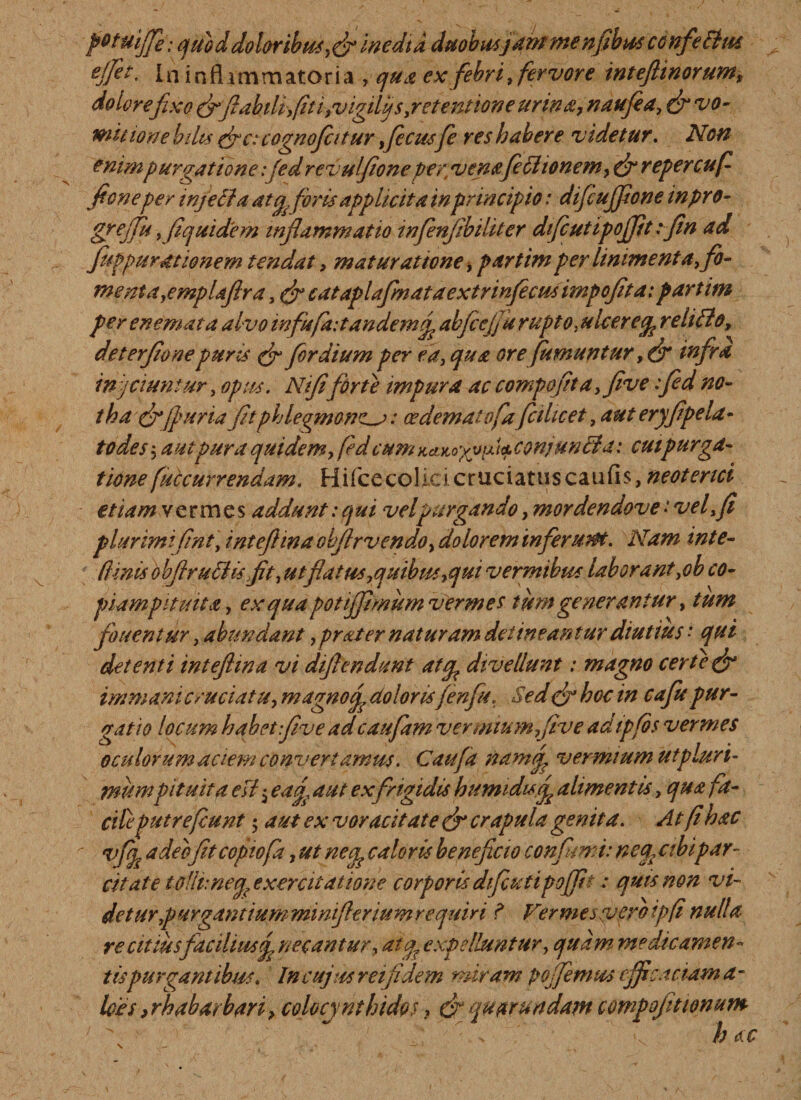 potuiſſe: quod doloribus, & inediâ duobus jam menſibus confectus
eſſet. In inflammatoria, quæ ex febri, fervore inteſtinorum,
dolore fixo & ſtabili, ſiti, vigiliis, retentione urinæ, nauſea, & vo-
mitione bilis &c: cognoſcitur, ſecus ſe res habere videtur. Non
enim purgatione: ſed revulſione per venæ ſectionem, & repercuſ-
ſione per injecta atq; foris applicita in principio: diſcuſſione in pro-
greſſu, ſiquidem inflammatio inſenſibiliter diſcuti poſſit: ſin ad
ſuppurationem tendat, maturatione, partim per linimenta, fo-
menta, emplaſtra, & cataplaſmata extrinſecus impoſita: partim
per enemata alvo infuſa: tandemq; abſceſſu rupto, ulcereq; relicto,
deterſione puris & ſordium per ea, quæ ore ſumuntur, & infrà
injciuntur, opus. Niſi fortè impura ac compoſita, ſive: ſed no-
tha & ſpuria ſit phlegmone: œdematoſa ſcilicet, aut eryſipela-
todes; aut pura quidem, ſed cum κακοχυμίᾳ conjuncta: cui purga-
tione ſuccurrendam. Hiſce colici cruciatus cauſis, neoterici
etiam vermes addunt: qui vel purgando, mordendove: vel, ſi
plurimi ſint, inteſtina obſtrvendo, dolorem inferunt. Nam inte-
ſtinis obſtructis fit, ut flatus, quibus, qui vermibus laborant, ob co-
piam pituitæ, ex qua potiſſimùm vermes tùm generantur, tùm
fouentur, abundant, præter naturam detineantur diutiùs: qui
detenti inteſtina vi diſtendunt atq; divellunt: magno certè &
immani cruciatu, magnoq; doloris ſenſu. Sed & hoc in caſu pur-
gatio locum habet: ſive ad cauſam vermium, ſive ad ipſos vermes
oculorum aciem convertamus. Cauſa namq; vermium ut pluri-
mùm pituita eſt; eaq; aut ex frigidis humidisq; alimentis, quæ fa-
cilè putreſcunt; aut ex voracitate & crapula genita. At ſi hæc
vſq; adeò ſit copioſa, ut neq; caloris beneficio conſumi: neq; cibi par-
citate tolli: neq; exercitatione corporis diſcuti poſſit: quis non vi-
detur, purgantium miniſterium requiri? Vermes verò ipſi nulla
re citiùs faciliusq; necantur, atq; expelluntur, quàm medicamen-
tis purgantibus. In cujus rei fidem miram poſſemus efficaciam a-
loës, rhabarbari, colocynthidos, & quarundam compoſitionum
hac